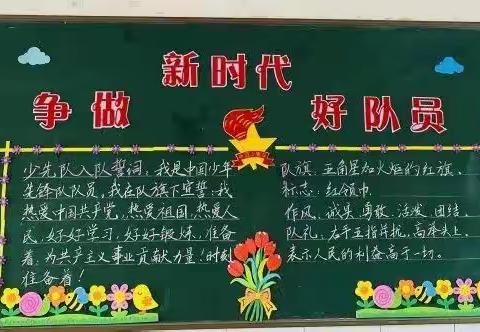 新时代
争做 好队员
少先队入队誓词:我是中国少年
先锋队队员,我在队旗下宣誓:我
热爱中国共产党,热爱祖国,热爱人
民,好好学习,好好锻炼,准备
着:为共产主义事业贡献力量!时刻
准备着!
队旗:五角星加火炬的红旗。
标志:红领巾
作风:诚实、勇敢、活泼、团结。
队礼:右手五指并拢,高举头上,
表示人民的利益高于一切。